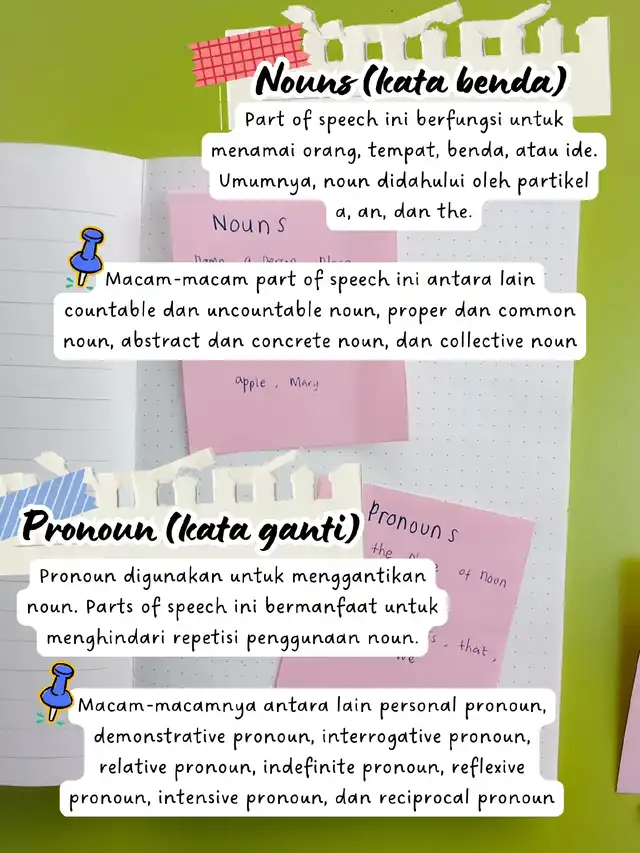 Nouns (kata benda)
Part of speech ini berfungsi untuk
menamai orang, tempat, benda, atau ide.
Umumnya, noun didahului oleh partikel
a, an, dan the.
Nouns
Macam-macam part of speech ini antara lain
countable dan uncountable noun, proper dan common
noun, abstract dan concrete noun, dan collective noun
apple, Mary
Pronoun (kata ganti)
Pronouns
the
of noun
Pronoun digunakan untuk menggantikan
noun. Parts of speech ini bermanfaat untuk
menghindari repetisi penggunaan noun.
that,
we
Macam-macamnya antara lain personal pronoun,
demonstrative pronoun, interrogative pronoun,
relative pronoun, indefinite pronoun, reflexive
pronoun, intensive pronoun, dan reciprocal pronoun